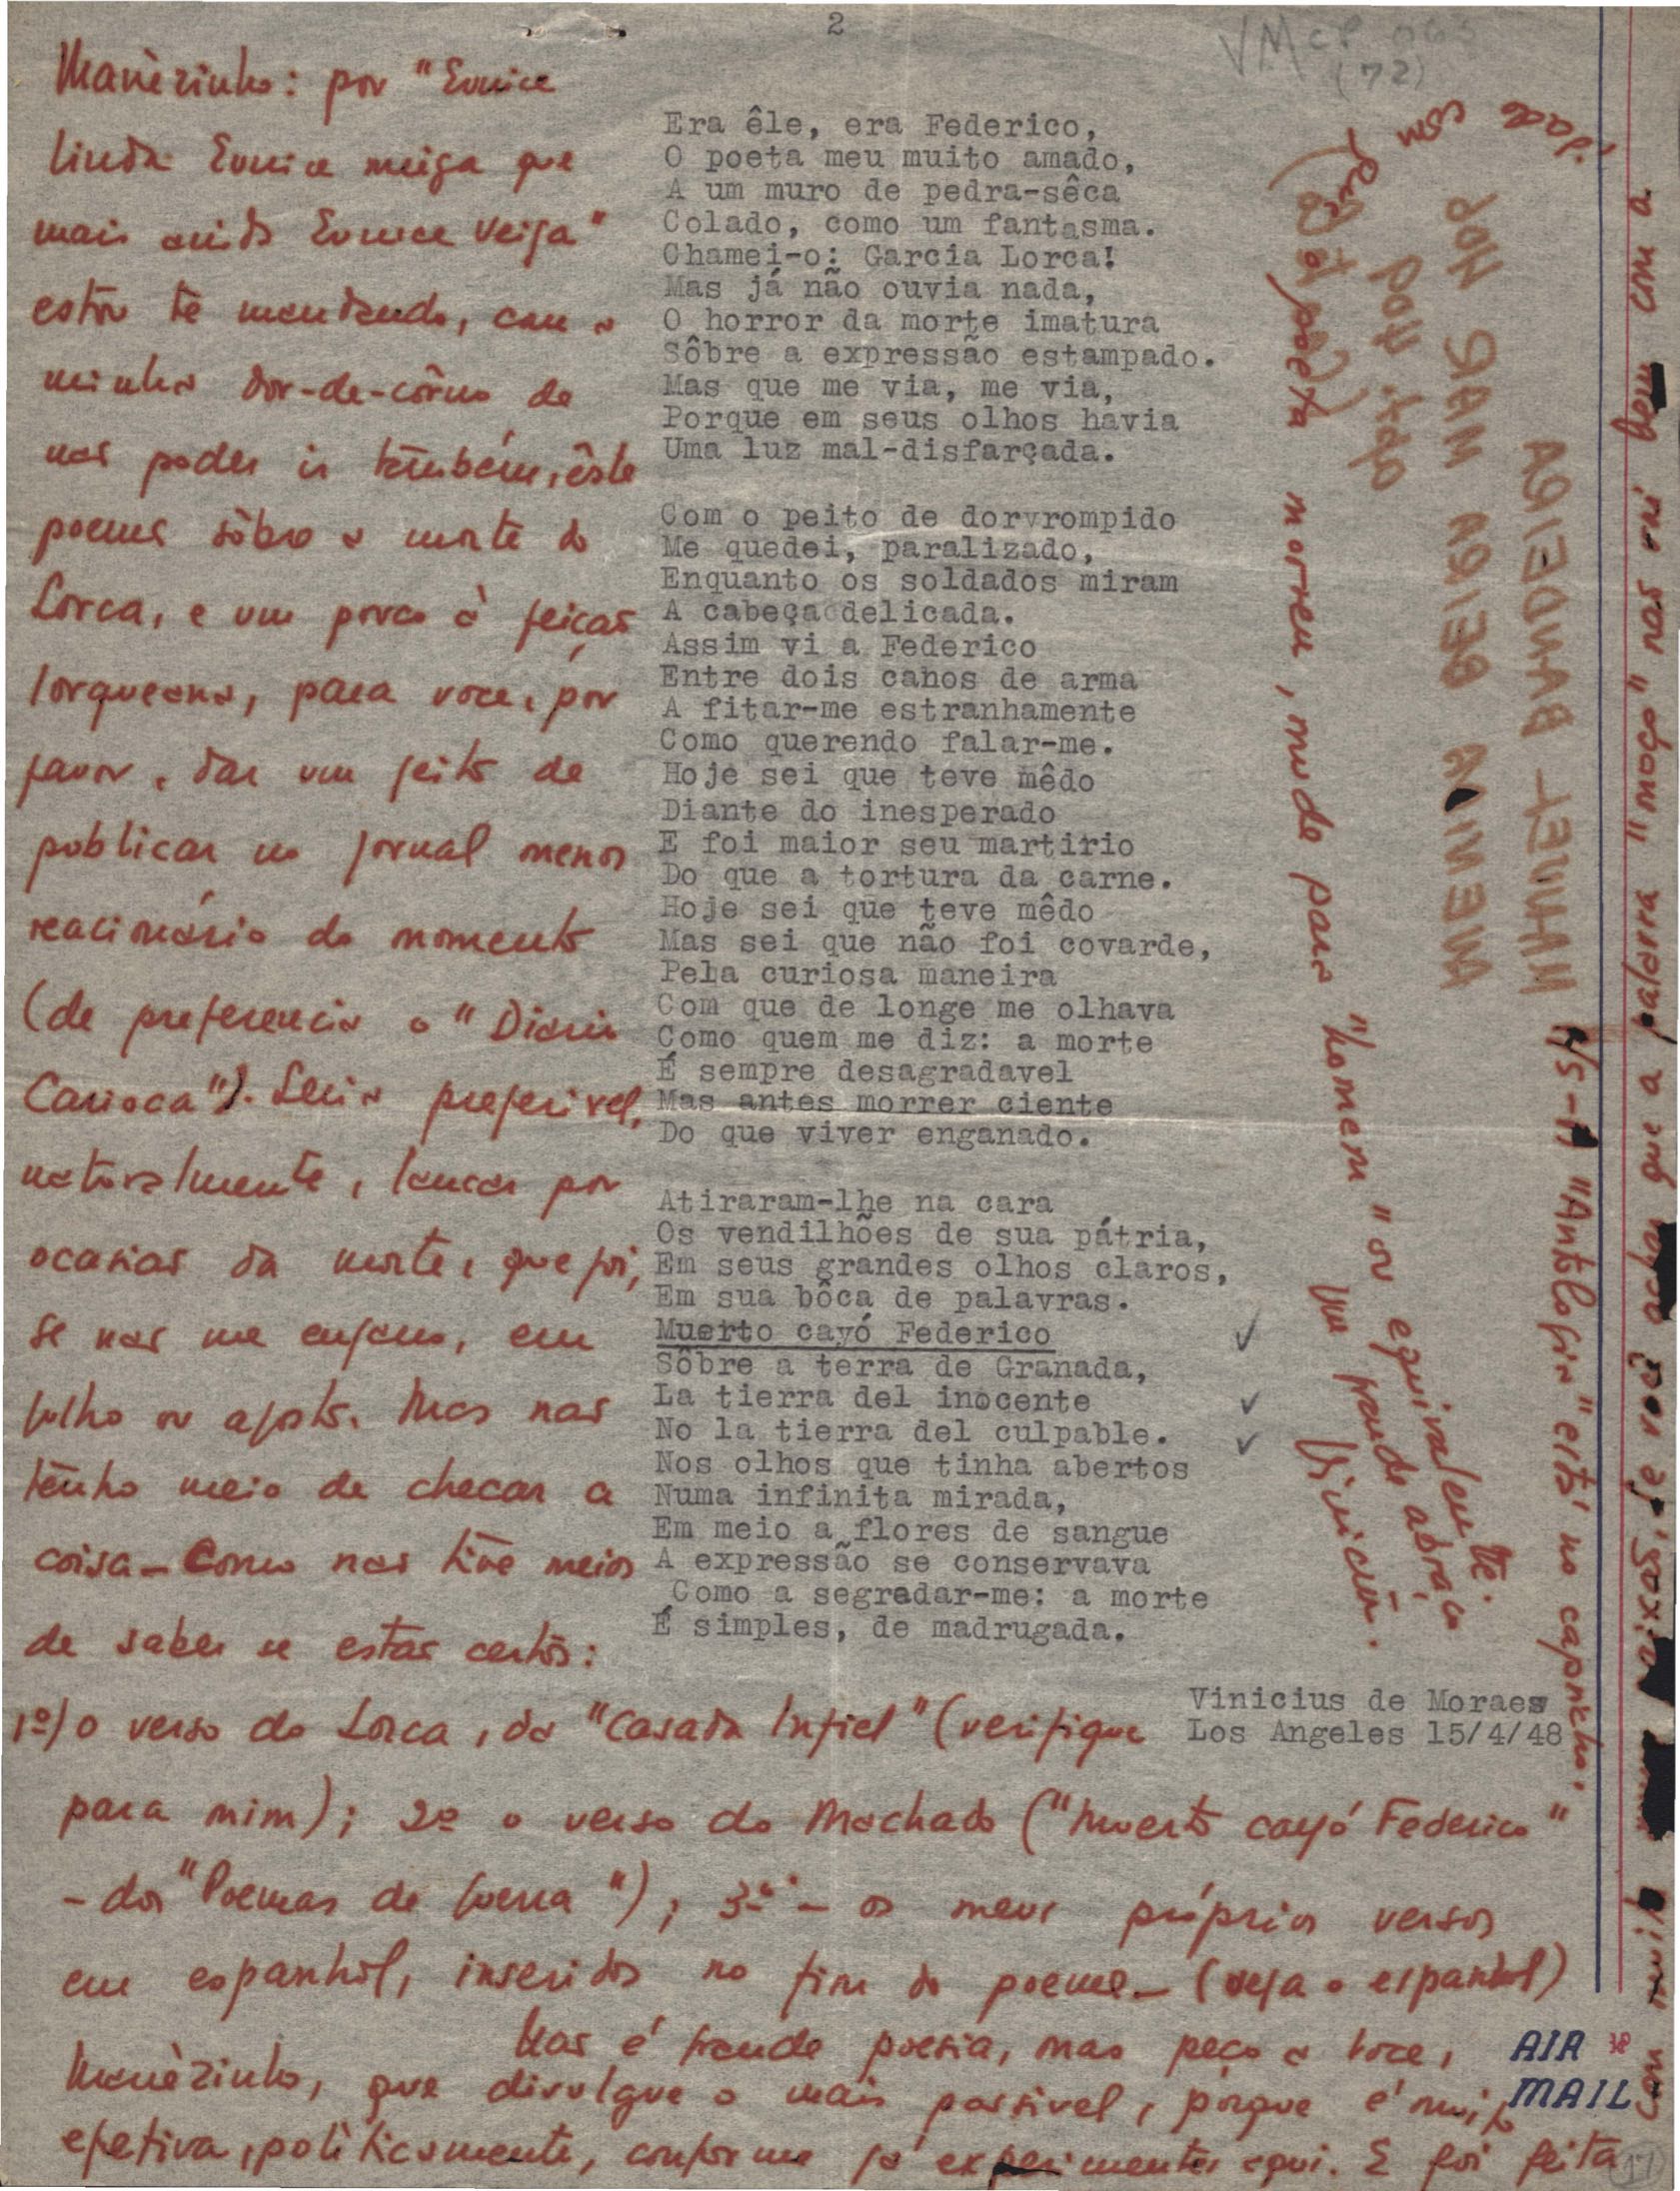 2
VMcp 063
(72)
Era êle, era Federico,
O poeta meu muito amado,
A um muro de pedra-sêca
Colado, como um fantasma.
Chamei-o: Garcia Lorca!
Mas já não ouvia nada,
O horror da morte imatura
Sôbre a expressão estampado.
Mas que me via, me via,
Porque em seus olhos havia
Uma luz mal-disfarçada.
Com o peito de dor rompido
Me quedei, paralizado,
Enquanto os soldados miram
A cabeça delicada.
Assim vi a Federico
Entre dois canos de arma
A fitar-me estranhamente
Como querendo falar-me.
Hoje sei que teve mêdo
Diante do inesperado
E foi maior seu martirio
Do que a tortura da carne.
Hoje sei que teve mêdo
Mas sei que não foi covarde,
Pela curiosa maneira
Com que de longe me olhava
Como quem me diz: a morte
É sempre desagradavel
Mas antes morrer ciente
Do que viver enganado.
Atiraram-lhe na cara
Os vendilhões de sua pátria,
Em seus grandes olhos claros,
Em sua bôca de palavras.
Muerto cayó Federico
Sôbre a terra de Granada,
La tierra del inocente
No la tierra del culpable.
Nos olhos que tinha abertos
Numa infinita mirada,
Em meio a flores de sangue
A expressão se conservava
Como a segredar-me: a morte
É simples, de madrugada.
Vinicius de Moraes
Los Angeles 15/4/48
Manèzinho: por "Eunice
linda Eunice meiga que
mais ainda Eunice Veiga"
estou te mandando, com a
minha dor-de-côrno de
não poder ir também, êste
poema sôbre a morte do
Lorca, e um pouco à feição
lorqueana, para voce, por
favor, dar um jeito de
publicar no jornal menos
reacionário do momento
(de preferencia o "Diario
Carioca"). Seria preferivel,
naturalmente, lançar por
ocasião da morte, que foi,
se não me engano, em
julho ou agosto. Mas não
tenho meio de checar a
coisa - Como não tive meios
de saber se estão certos:
1º) o verso do Lorca, da "Casada Infiel" (verifique
para mim); 2º o verso do Machado ("Muerto cayó Federico"
- dos "Poemas de Guerra"); 3º - os meus próprios versos
em espanhol, inseridos no fim do poema - (veja o espanhol)
Não é grande poesia, mas peço a voce,
Manèzinho, que divulgue o mais possivel, porque é muito
efetiva, politicamente, conforme já experimentei aqui. E foi feita
AIR
MAIL
17
com muita paixão. Se você achar que a palavra "moço" não vai bem com a
do poeta morreu, mude para "homem" ou equivalente.
Um grande abraço
Vinicius.
"Antologia" está no capricho.
MANUEL BANDEIGA
MENINA BEIGA MAR HOP